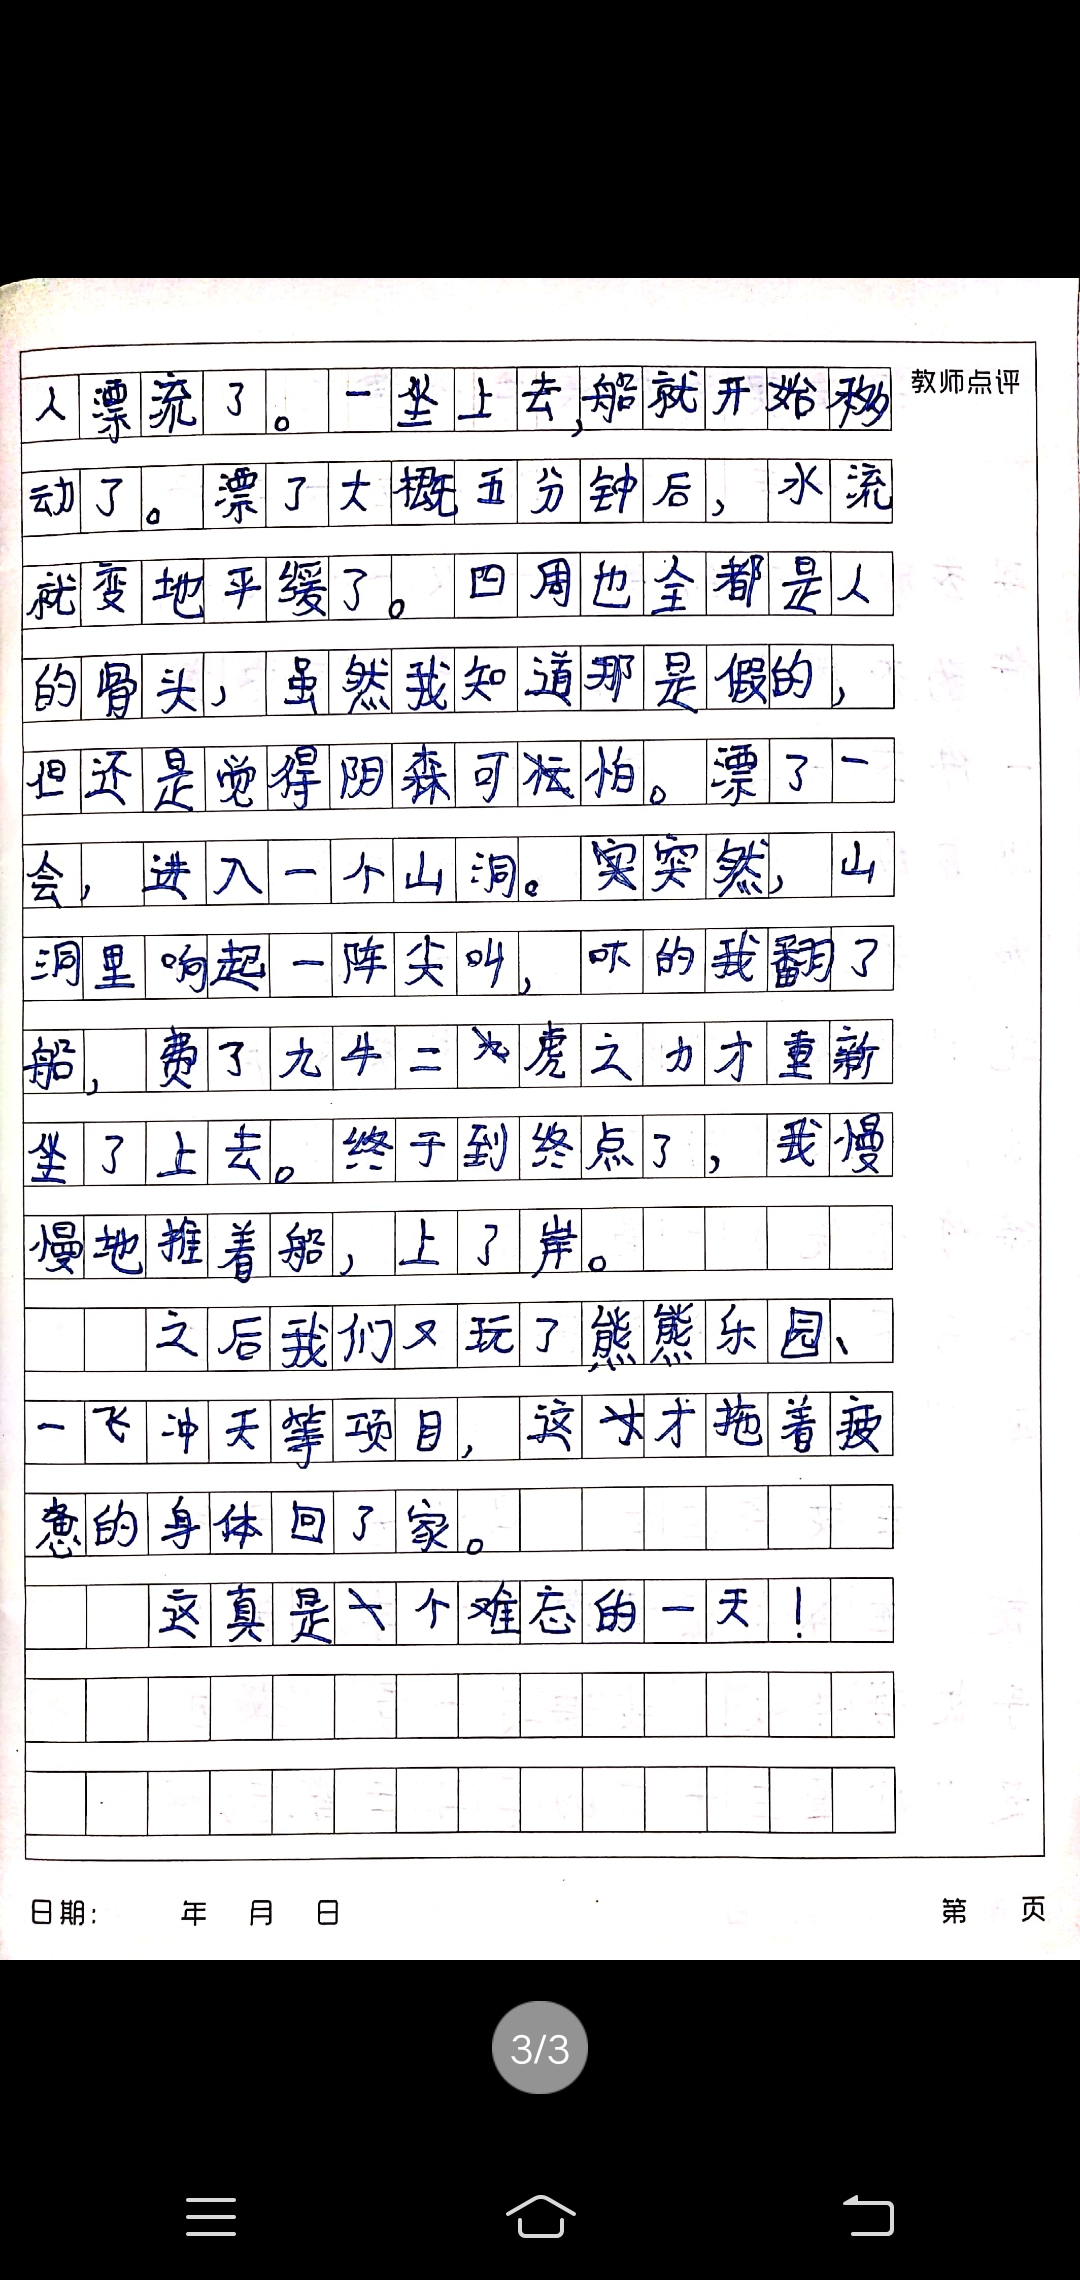 人漂流了。一坐上去,船就开始移
教师点评
动了。漂了大概五分钟后,水流
就变地平缓了。四周也全都是人
的骨头,虽然我知道那是假的,
但还是觉得阴森可怕。漂了一
会,进入一个山洞。突然,山
洞里响起一阵尖叫,吓的我翻了
船,费了九牛二虎之力才重新
坐了上去。终于到终点了,我慢
慢地推着船,上了岸。
之后我们又玩了熊熊乐园、
一飞冲天等项目,这才拖着疲
惫的身体回了家。
这真是个难忘的一天!
日期: 年 月 日
第 页
3/3